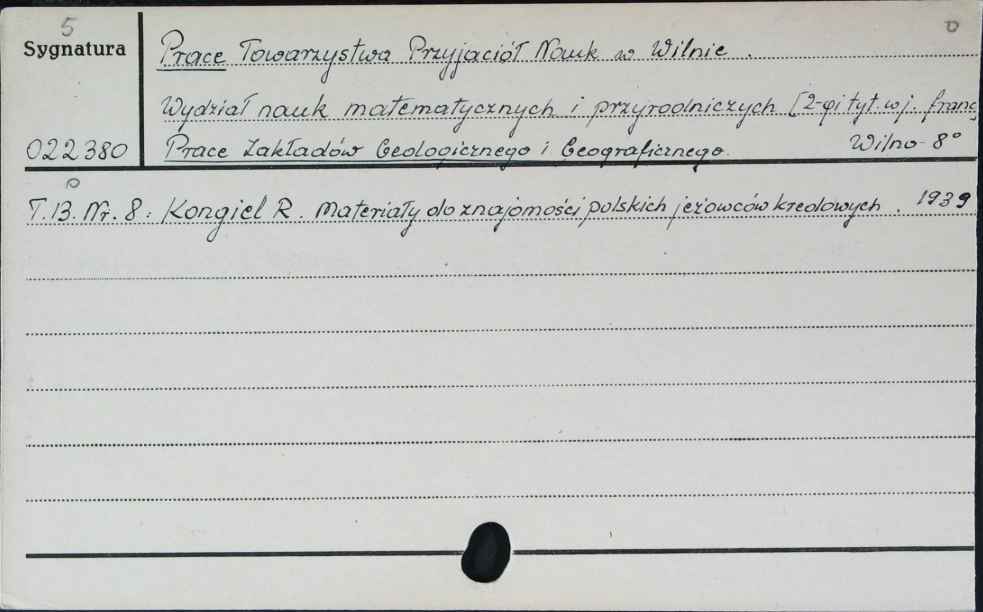 5
Sygnatura
Prace Towarzystwa Przyjaciół Nauk w Wilnie.
Wydział nauk matematycznych i przyrodniczych [2-gi tyt. w j. franc
022380
Prace Zakładów Geologicznego i Geograficznego. Wilno 8°
T. 13. Nr. 8: Kongiel R. Materiały do znajomości polskich jeżowców kredowych. 1939